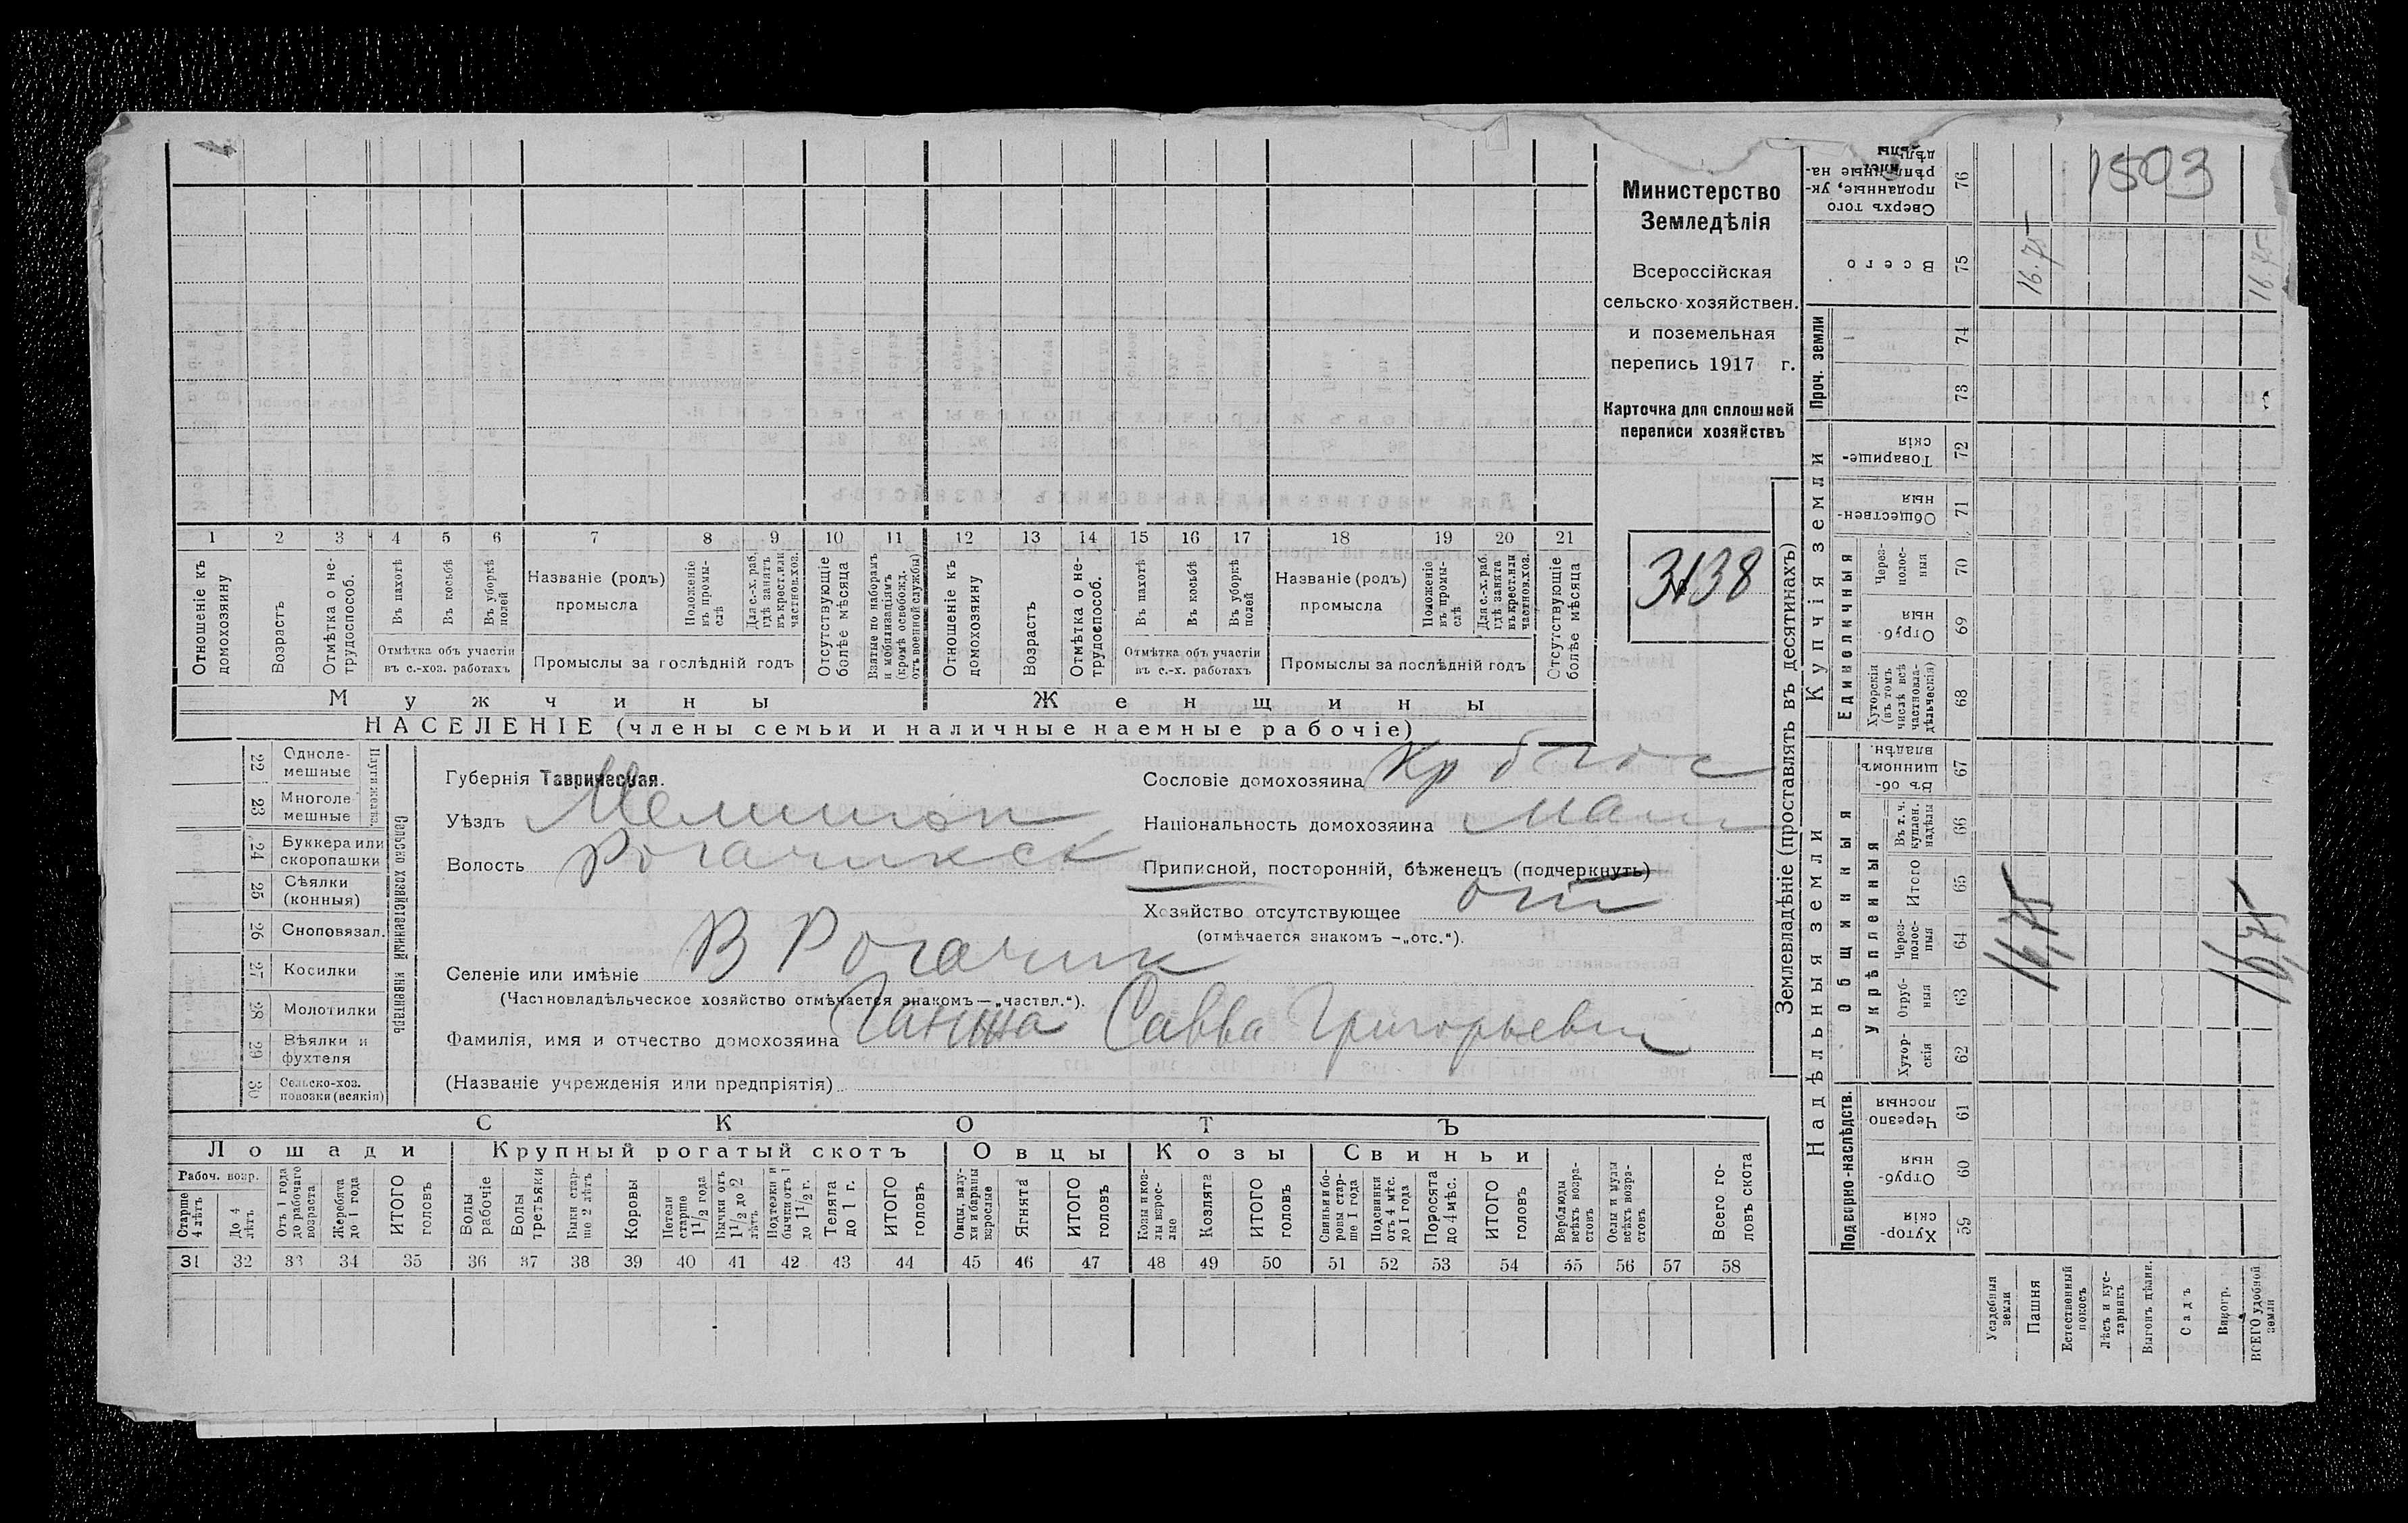 Министерство
Земледѣлія
Всероссійская
сельско-хозяйствен.
и поземельная
перепись 1917 г.
Карточка для сплошней
переписи хозяйствъ
3138
1503
1 2 3 4 5 6 7 8 9 10 11 12 13 14 15 16 17 18 19 20 21
Отношеніе къ домохозяину
Возрастъ
Отмѣтка о не-трудоспособ.
Въ пахотѣ
Въ косьбѣ
Въ уборкѣ полей
Отмѣтка объ участіи
въ с.-хоз. работахъ
Названіе (родъ)
промысла
Положеніе въ промы-слѣ
Для с.-х. раб. гдѣ занятъ въ крест. или частнов. хоз.
Промыслы за послѣдній годъ
Отсутствующіе болѣе мѣсяца
Взятые по наборамъ и мобилизаціямъ (кромѣ освобожд. отъ военной службы)
Отношеніе къ домохозяину
Возрастъ
Отмѣтка о не-трудоспособ.
Въ пахотѣ
Въ косьбѣ
Въ уборкѣ полей
Отмѣтка объ участіи
въ с.-х. работахъ
Названіе (родъ)
промысла
Положеніе въ промы-слѣ
Для с.-х. раб. гдѣ занята въ крест. или частнов. хоз.
Промыслы за послѣдній годъ
Отсутствующіе болѣе мѣсяца
Мужчины
Женщины
НАСЕЛЕНІЕ (члены семьи и наличные наемные рабочіе)
22 Одноле-мешные
23 Многоле мешные
Плуги желѣз.
24 Буккера или скоропашки
25 Сѣялки (конныя)
26 Сноповязал.
27 Косилки
28 Молотилки
29 Вѣялки и фухтеля
30 Сельско-хоз. повозки (всякія)
Сельско хозяйственный инвентарь
Губернія Таврическая.
Уѣздъ Мелитоп
Волость Рогачикск
Селеніе или имѣніе В Рогачик
(Частновладѣльческое хозяйство отмѣчается знакомъ — „частвл.“).
Фамилія, имя и отчество домохозяина Ганжа Савва Григорьевич
(Названіе учрежденія или предпріятія)
Сословіе домохозяина Кр
Національность домохозяина
Приписной, посторонній, бѣженецъ (подчеркнуть)
Хозяйство отсутствующее от
(отмѣчается знакомъ —„отс.“).
СКОТЪ
Лошади
Крупный рогатый скотъ
Овцы
Козы
Свиньи
Рабоч. возр.
Старше 4 лѣтъ
До 4 лѣтъ
Отъ 1 года до рабочаго возраста
Жеребята до 1 года
ИТОГО головъ
Волы рабочіе
Волы третьяки
Быки стар-ше 2 лѣтъ
Коровы
Нетели старше 1 1/2 года
Бычки отъ 1 1/2 до 2 лѣтъ
Подтелки и бычки отъ 1 до 1 1/2 г.
Телята до 1 г.
ИТОГО головъ
Овцы, валу-хи и бараны взрослые
Ягнята
ИТОГО головъ
Козы и коз-лы взрос-лые
Козлята
ИТОГО головъ
Свиньи и бо-ровы стар-ше 1 года
Подсвинки отъ 4 мѣс. до 1 года
Поросята до 4 мѣс.
ИТОГО головъ
Верблюды всѣхъ возра-стовъ
Ослы и мулы всѣхъ возра-стовъ
Всего го-ловъ скота
31 32 33 34 35 36 37 38 39 40 41 42 43 44 45 46 47 48 49 50 51 52 53 54 55 56 57 58
Землевладѣніе (проставлять въ десятинахъ)
Надѣльныя земли
Купчія земли
Проч. земли
Подворно-наслѣдств.
Общинныя
Укрѣпленныя
Единоличныя
Хутор-скія 59
Отруб-ныя 60
Черезпо лосныя 61
Хутор-скія 62
Отруб-ныя 63
Через-полос-ныя 64
Итого 65
Въ т. ч. куплен. надѣлы 66
Въ об-щинномъ владѣн. 67
Хуторскія (въ томъ числѣ всѣ частновла-дѣльческія) 68
Отруб-ныя 69
Через-полос-ныя 70
Обществен-ныя 71
Товарище-скія 72
73
74
Всего 75
Сверхъ того проданные, ук-рѣпленные на-дѣлы 76
Усадебныя земли
Пашня
Естественный покосъ
Лѣсъ и кус-тарникъ
Выгонъ дѣлин.
Садъ
Виногр.
ВСЕГО удобной земли
16,75
16.75
16,75
16.75